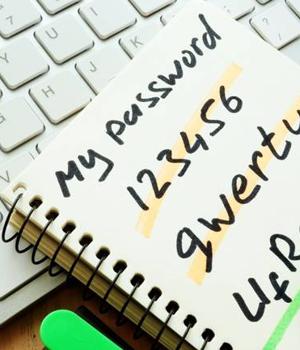 My password
123456
qwertu
UfR